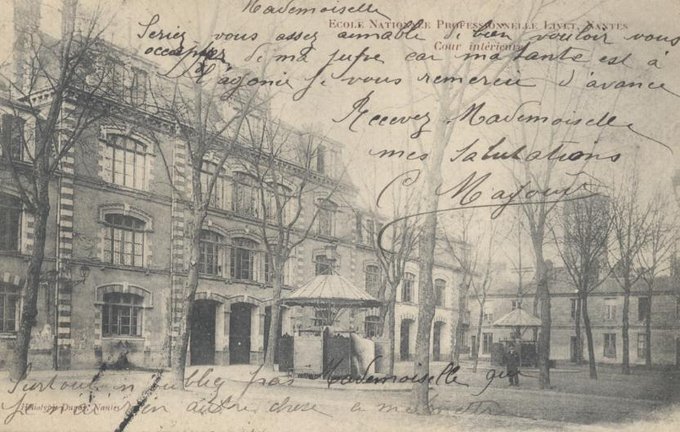 Mademoiselle
ECOLE NATIONALE PROFESSIONNELLE LIVET, NANTES
Cour intérieure
Seriez vous assez aimable de bien vouloir vous
occuper de ma jupe car ma tante est à
l'agonie je vous remercie d'avance
Recevez Mademoiselle
mes salutations
Surtout n'oubliez pas Mademoiselle que
je n'ai rien autre chose à me mettre
Nantes